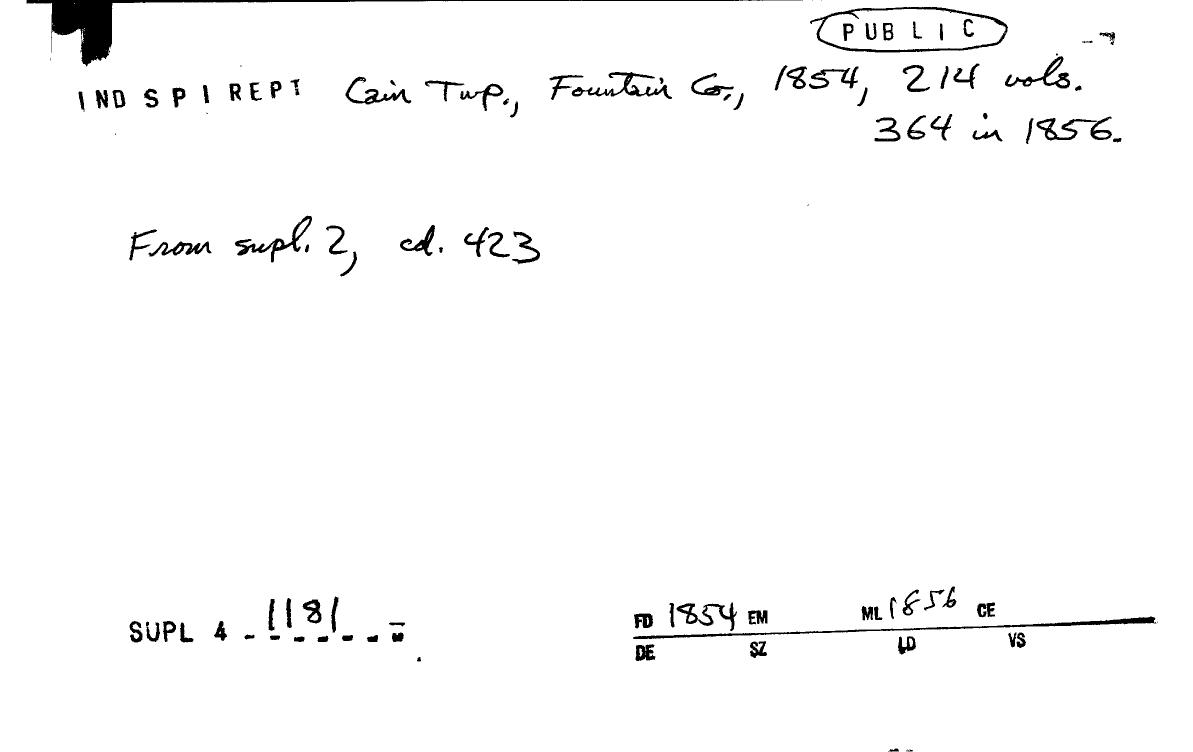 PUBLIC
INDSPIREPT Cain Twp., Fountain Co., 1854, 214 vols.
364 in 1856.
From supl. 2, cd. 423
SUPL 4 - 1181
FD 1854 EM ML 1856 CE
DE SZ LD VS